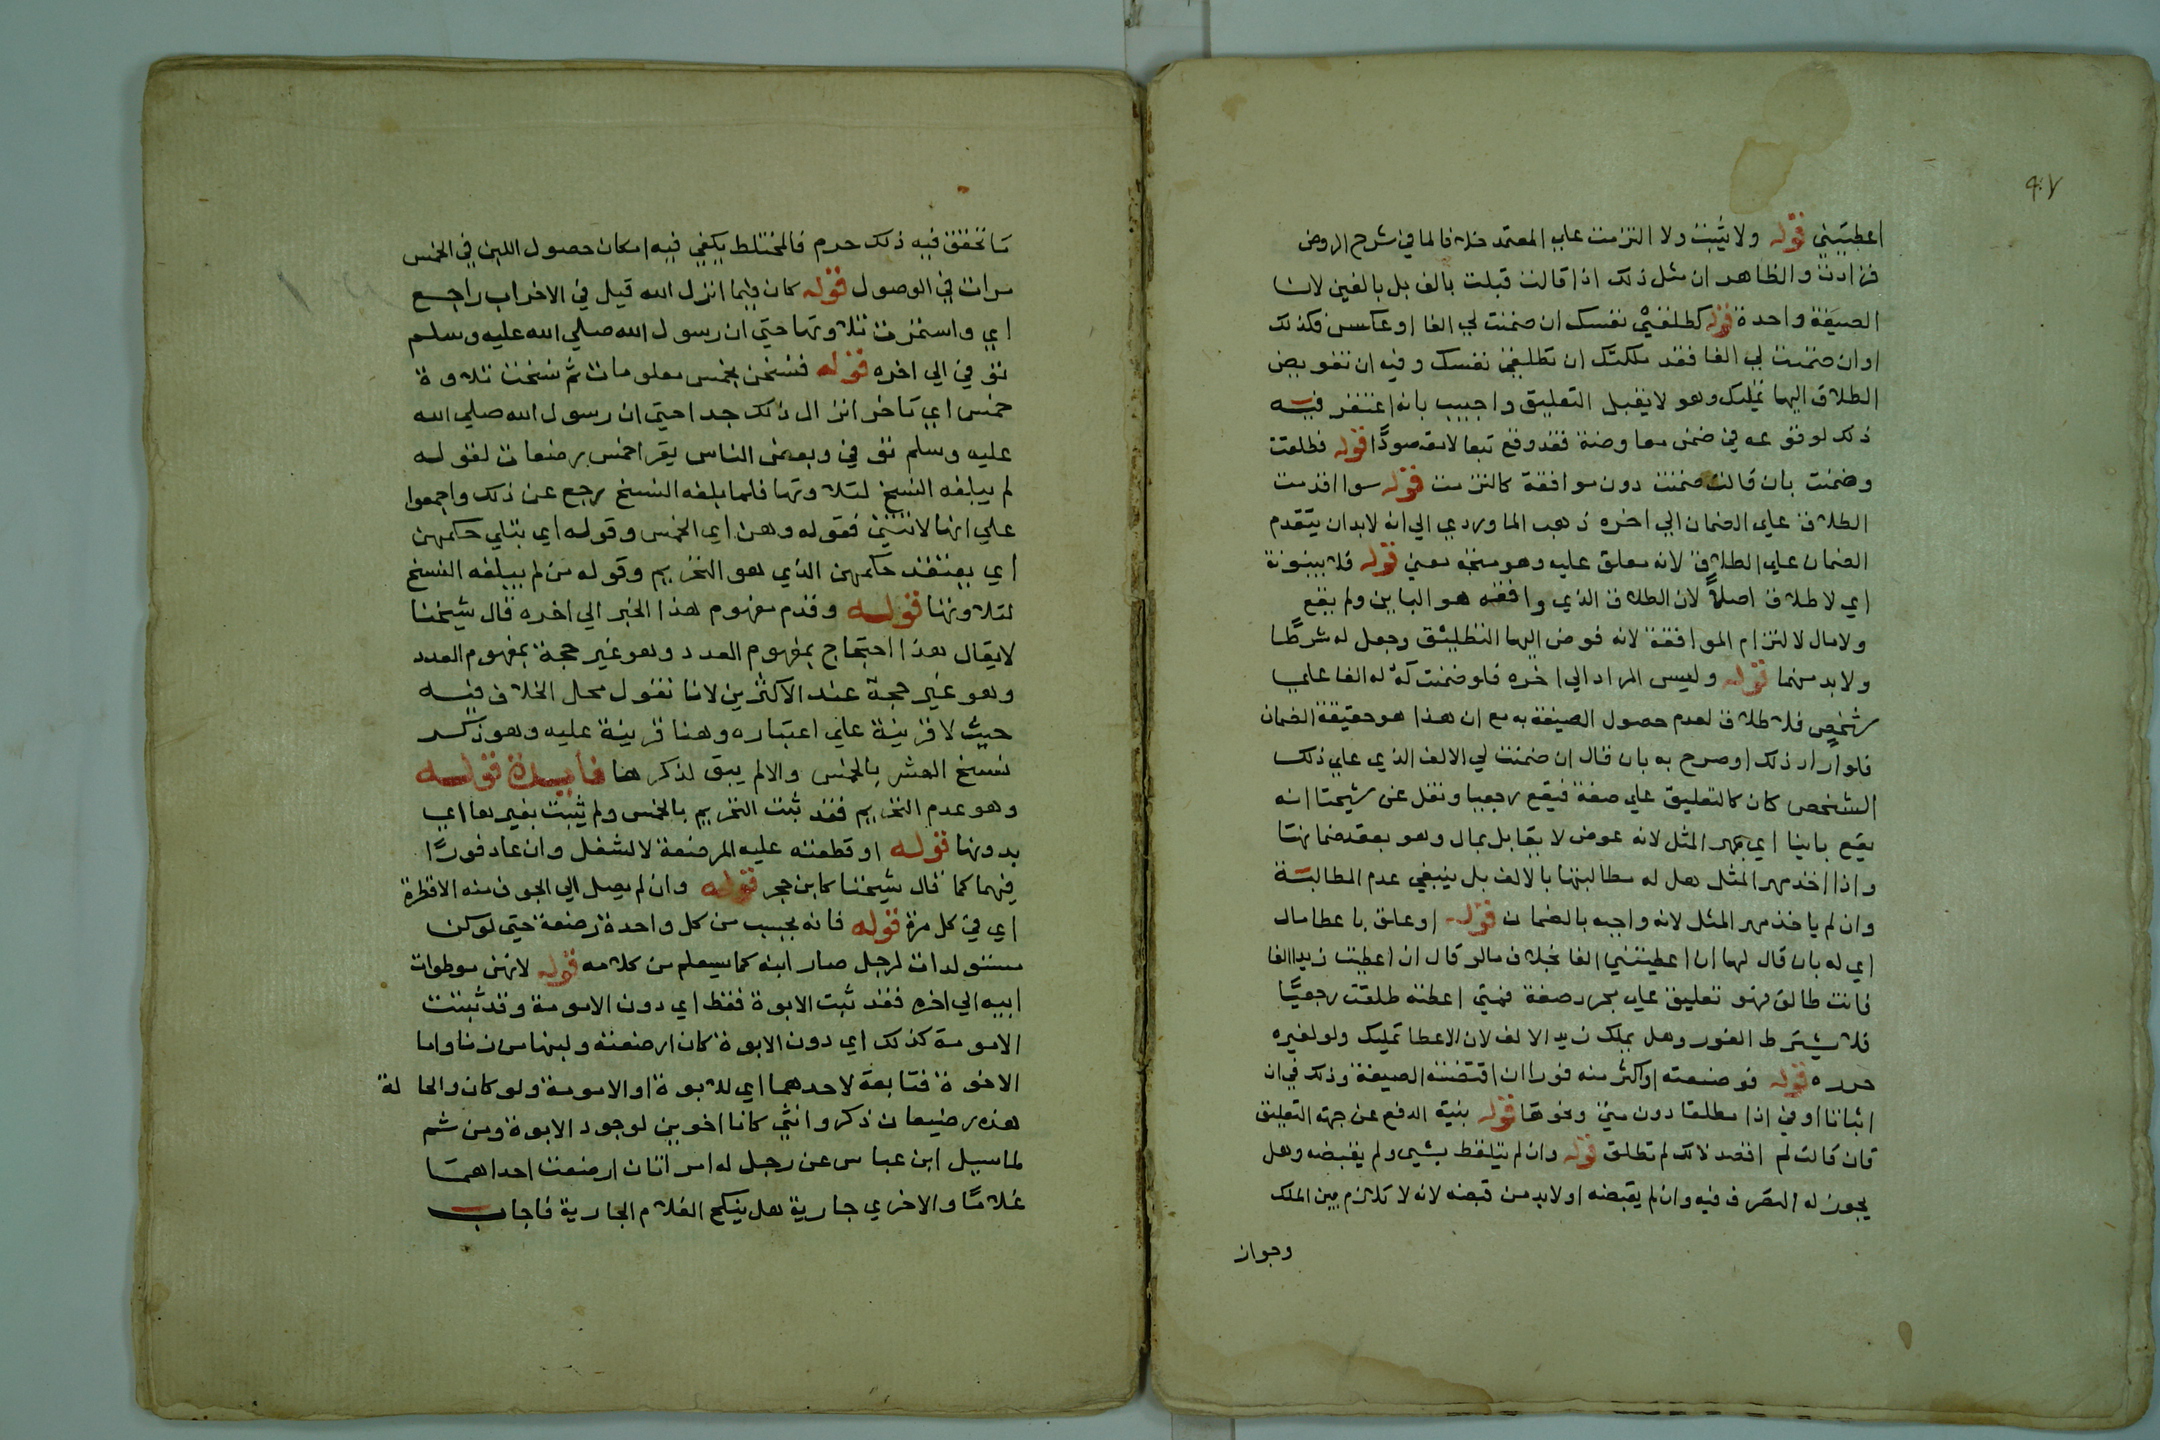 ٩٠٧
اعطيتيني قوله ولا يثبت ولا التزمت علي المعتمد خلافا لما في شرح الروض
فزادت والظاهر ان مثل ذلك اذا قالت قبلت بالف بل بالفين لان
الصيغة واحدة قوله كطلقي نفسك ان ضمنت لي الفا او عكس فكذلك
او ان ضمنت لي الفا فقد ملكتك ان تطلقي نفسك وفيه ان تفويض
الطلاق اليها تمليك وهو لا يقبل التعليق واجيب بانه اغتفر فيه
ذلك لوقوعه في ضمن معاوضة فقد وقع تبعا لا مقصودًا قوله فطلقت
وضمنت بان قالت ضمنت دون موافقة كالتزمت قوله سوا اقدمت
الطلاق علي الضمان الي اخره ذهب الماوردي الي انه لا بد ان يتقدم
الضمان علي الطلاق لانه معلق عليه وهو متجه معني قوله فلا بينونة
اي لا طلاق اصلاً لان الطلاق الذي وافقه هو الباين ولم يقع
ولا مال لا لتزام الموافقة لانه فوض اليها التطليق وجعل له شرطًا
ولا بد منهما قوله وليس المراد الي اخره فلو ضمنت له الفا علي
شخصٍ فلا طلاق لعدم حصول الصيغة به مع ان هذا هو حقيقة الضمان
فلو اراد ذلك او صرح به بان قال ان ضمنت لي الالف الذي علي ذلك
الشخص كان كالتعليق علي صفة فيقع رجعيا ونقل عن شيخنا انه
يقع باينا اي بمهر المثل لانه عوض لا يقابل بمال وهو بعقد ضمانها
واذا اخذ مهر المثل هل له مطالبتها بالالف بل ينبغي عدم المطالبة
وان لم ياخذ مهر المثل لانه واجبه بالضمان قوله او علق باعطا مال
اي له بان قال لها ان اعطيتني الفا بخلاف ما لو قال ان اعطيت زيدا الفا
فانت طالق فهو تعليق علي مجرد صفة فمتي اعطته طلقت رجعيًّا
فلا يشترط الفور وهل يملك زيد الالف لان الاعطا تمليك ولو لغيره
حرره قوله فوضعته او اكثر منه فورا ان اقتضته الصيغة وذلك في ان
اثباتا او في اذا مطلقا دون متي ونحوها قوله بنية الدفع عن جهة التعليق
فان قالت لم اقصد ذلك لم تطلق قوله وان لم يتلفظ بشي ولم يقبضه وهل
يجوز له التصرف فيه وان لم يقبضه او لا بد من قبضه لانه لا تلازم بين الملك
وجواز
ما تحقق فيه ذلك حرم فالمختلط يكفي فيه امكان حصول اللبن في الخمس
مرات في الوصول قوله كان فيما انزل الله قيل في الاخراب راجع
اي واستمرت تلاوتها حتي ان رسول الله صلي الله عليه وسلم
توفي الي اخره قوله فنسخن بخمس معلومات ثم نسخت تلاوة
خمس اي تاخر انزال ذلك جدا حتي ان رسول الله صلي الله
عليه وسلم توفي وبعض الناس يقرا خمس رضعات لقوله
لم يبلغه النسخ لتلاوتها فلما بلغه النسخ رجع عن ذلك واجمعوا
علي انها لا تتلي فقوله وهن اي الخمس وقوله اي يتلي حكمهن
اي يعتقد حكمهن الذي هو التحريم وقوله من لم يبلغه النسخ
لتلاوتها قوله وقدم مفهوم هذا الخبر الي اخره قال شيخنا
لا يقال هذا احتجاج بمفهوم العدد وهو غير حجة بمفهوم العدد
وهو غير حجة عند الاكثرين لانا نقول محل الخلاف فيه
حيث لا قرينة علي اعتباره وهنا قرينة عليه وهو ذكر
نسخ العشر بالخمس والا لم يبق لذكرها فايدة قوله
وهو عدم التحريم فقد ثبت التحريم بالخمس ولم يثبت بغيرها اي
بدونها قوله او قطعته عليه المرضعة لا لشغل وان عاد فورًا
فيهما كما قال شيخنا كابن حجر قوله وان لم يصل الي الجوف منه الا قطرة
اي في كل مرة قوله فانه يحسب من كل واحدة رضعة حتي لو كن
مستولدات لرجل صار ابنه كما سيعلم من كلامه قوله لانهن موطوات
ابيه الي اخره فقد ثبت الابوة فقط اي دون الامومة وقد ثبتت
الامومة كذلك اي دون الابوة كان ارضعته ولبنها من زنا واما
الاخوة فتابعة لاحدهما اي للابوة او الامومة ولو كان والحالة
هذه رضيعان ذكر وانثي كانا اخوين لوجود الابوة ومن ثم
لما سيل ابن عباس عن رجل له امراتان ارضعت احداهما
غلامًا والاخري جارية هل ينكح الغلام الجارية فاجاب